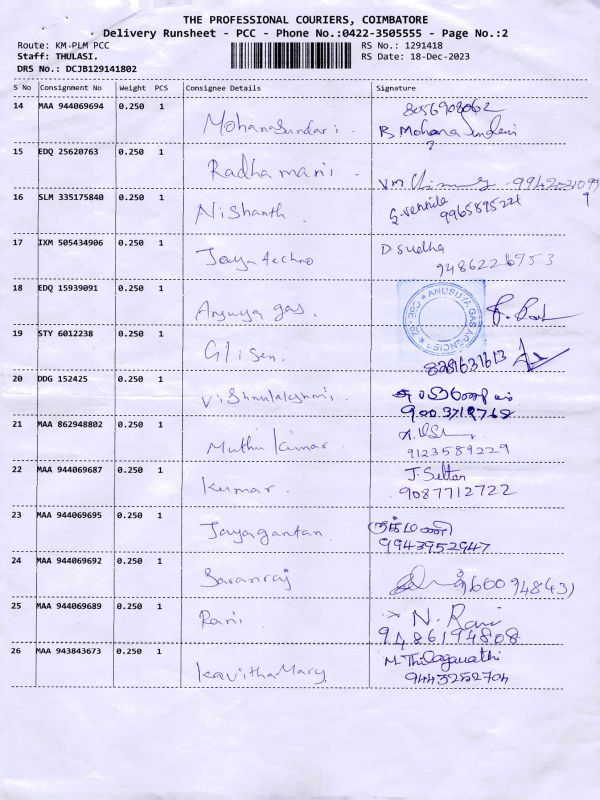 THE PROFESSIONAL COURIERS, COIMBATORE
Delivery Runsheet - PCC - Phone No.:0422-3505555 - Page No.:2
Route: KM-PLM PCC
RS No.: 1291418
Staff: THULASI.
RS Date: 18-Dec-2023
DRS No.: DCJB129141802
S No Consignment No Weight PCS Consignee Details Signature
14 MAA 944069694 0.250 1 Mohanasundari. 8056908062
B Mohana Sundari
15 EDQ 25620763 0.250 1 Radhamani.
16 SLM 335175840 0.250 1 Nishanth. 9965895221
17 IXM 505434906 0.250 1 Jaya techno D sudha
9486226753
18 EDQ 15939091 0.250 1 Anusuya gas.
ANUSUYA GAS AGENCIES
19 STY 6012238 0.250 1
20 DDG 152425 0.250 1 Vishnulakshmi.
21 MAA 862948802 0.250 1 Muthu Kumar
9123589229
22 MAA 944069687 0.250 1 Kumar. J. Seltan
9087712722
23 MAA 944069695 0.250 1 Jayagantan. ருக்மணி
9943952947
24 MAA 944069692 0.250 1 Saranraj 9600948431
25 MAA 944069689 0.250 1 Rani. N. Rani
9486194808
26 MAA 943843673 0.250 1 Kavitha Mary. M. Thilagavathi
9443252704